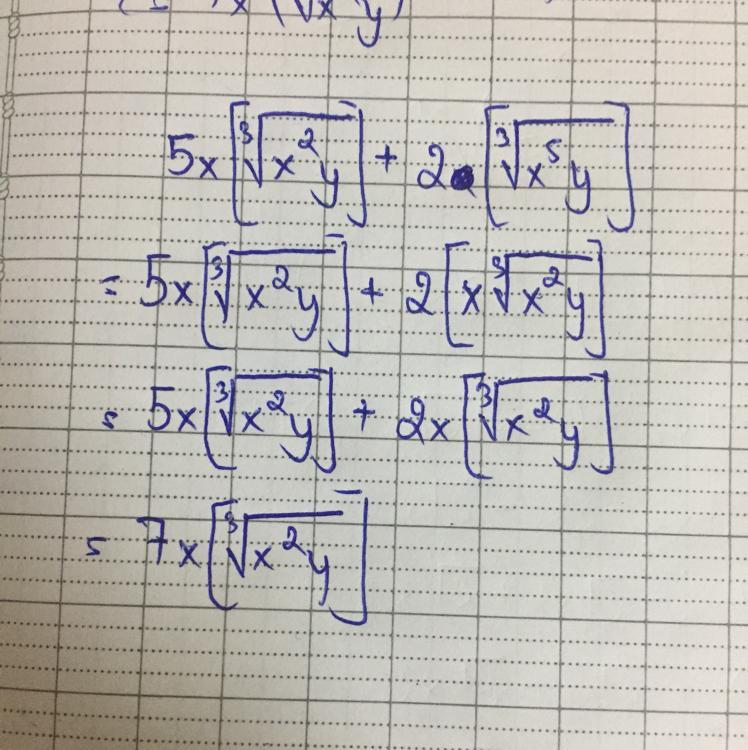 5x[∛(x²y)] + 2[∛(x⁵y)]
= 5x[∛(x²y)] + 2[x∛(x²y)]
= 5x[∛(x²y)] + 2x[∛(x²y)]
= 7x[∛(x²y)]